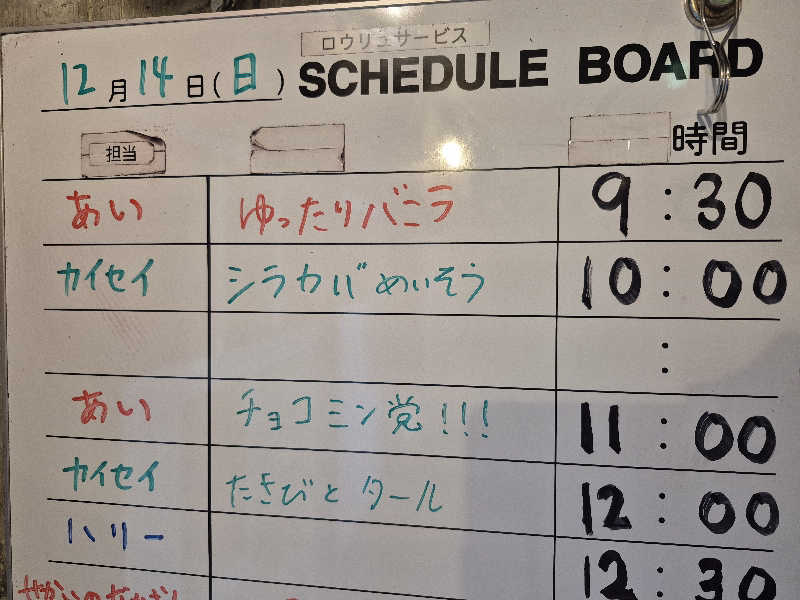 ロウリュサービス
12月14日(日) SCHEDULE BOARD
担当 時間
あい ゆったりバニラ 9:30
カイセイ シラカバめいそう 10:00
:
あい チョコミン党!!! 11:00
カイセイ たきびとタール 12:00
ハリー 12:30